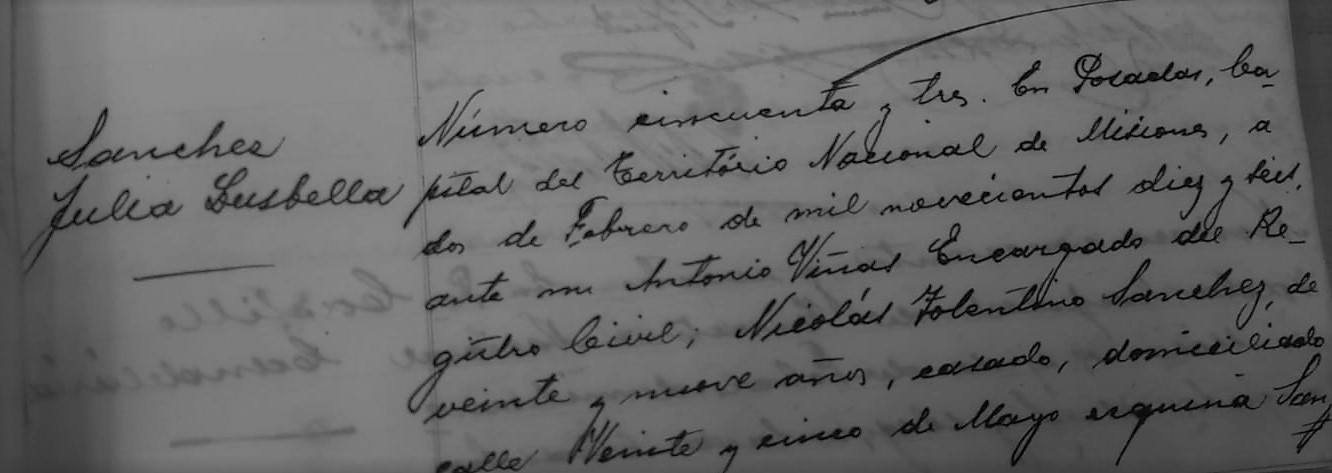 Sanchez
Julia Lusbella
Número cincuenta y tres. En Posadas, Ca-
pital del Território Nacional de Misiones, a
dos de Febrero de mil novecientos diez y seis,
ante mi Antonio Viñas Encargado del Re-
gistro Civil; Nicolás Tolentino Sanchez, de
veinte y nueve años, casado, domiciliado
calle Veinte y cinco de Mayo esquina San